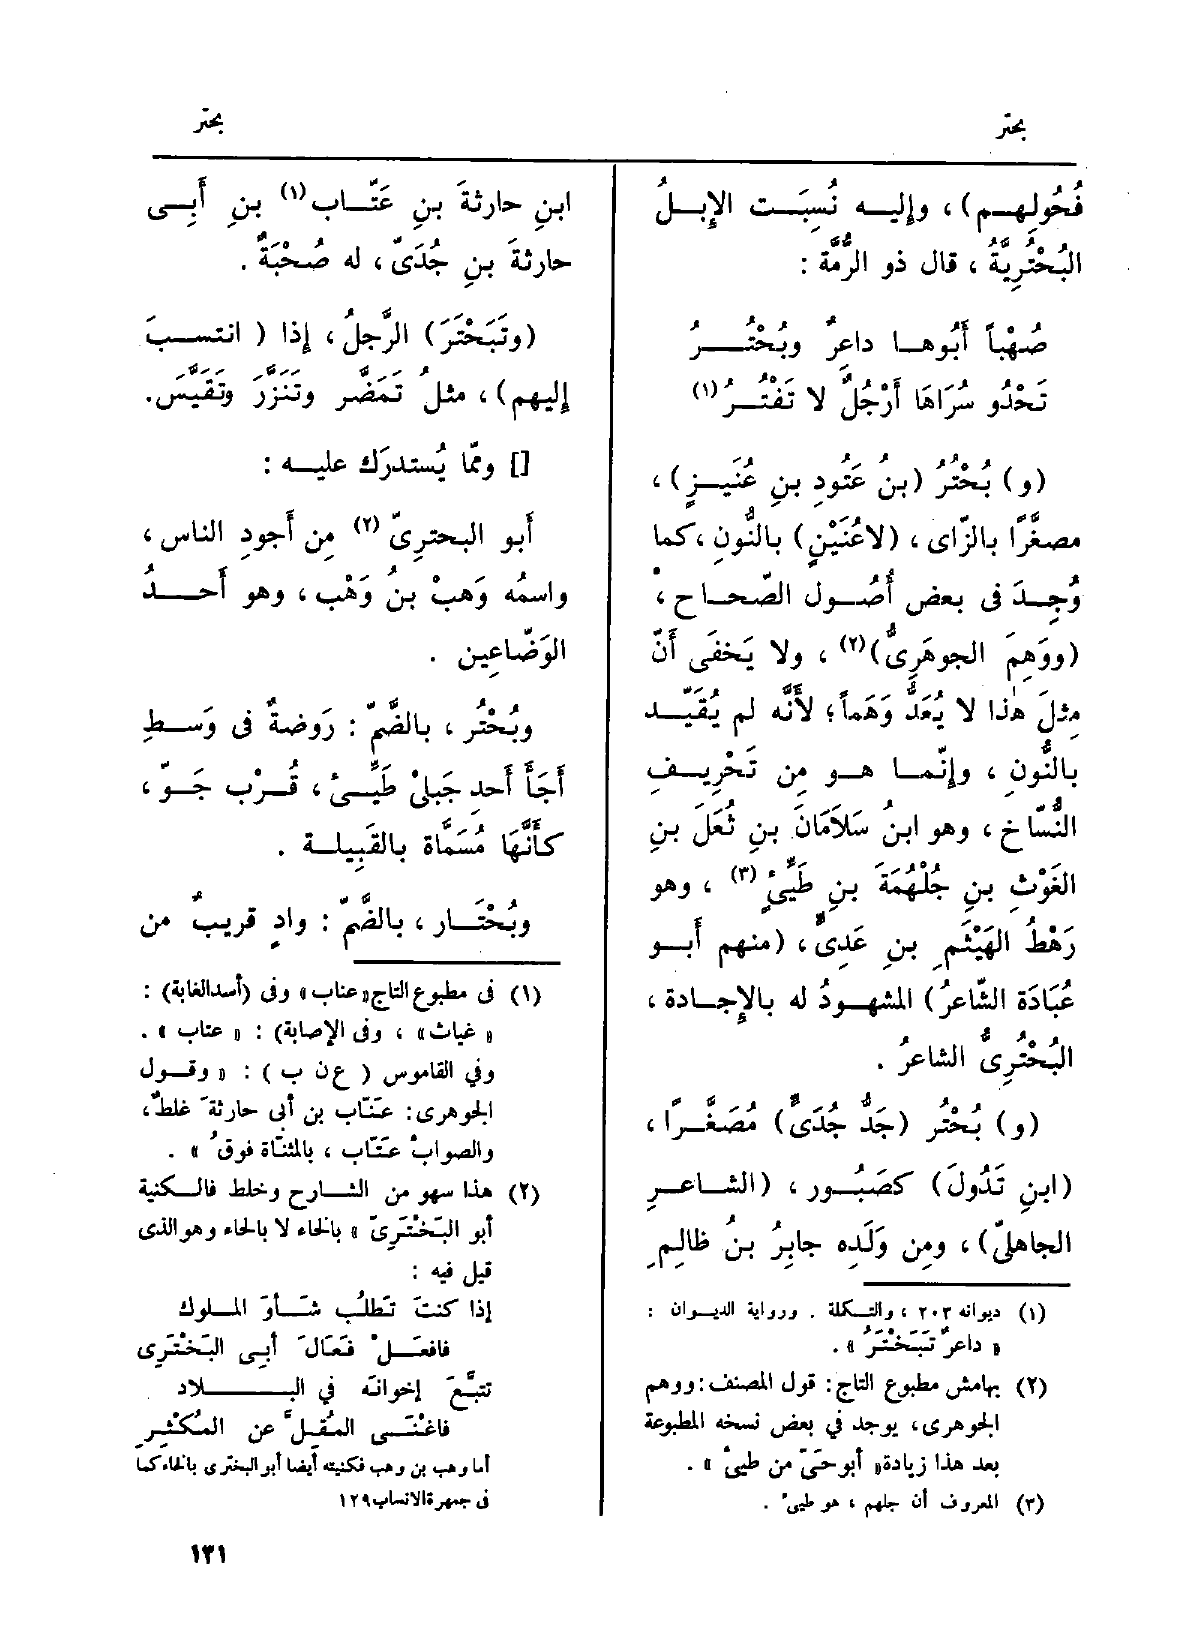 بحتر
بحتر
فُحُولِهـم) ، وإليـه نُسِبَـت الإِبـلُ
البُحْتُرِيَّةُ ، قال ذو الرُّمَّة :
صُهْباً أَبُوهـا داعِرٌ وبُحْتُـرُ
تَحْدُو سُرَاهَا أَرْجُلٌ لا تَفْتُـرُ (١)
(و) بُحْتُرُ (بنُ عَتُودِ بنِ عُنَيـزٍ) ،
مصغَّرًا بالزّاى ، (لاعُنَيْنٍ) بالنُّونِ ، كما
وُجِـدَ فى بعض أُصُـول الصّحـاح ،
(ووَهِمَ الجوهَرِىُّ)(٢) ، ولا يَخفَى أَنّ
مِثلَ هٰذا لا يُعَدُّ وَهَماً؛ لأَنَّه لم يُقَيَّـد
بالنُّونِ ، وإنّمـا هـو مِن تَحْرِيـفِ
النُّسّاخِ ، وهو ابنُ سَلَامَانَ بنِ ثُعَلَ بنِ
الغَوْثِ بنِ جُلْهُمَةَ بنِ طَيِّئٍ (٣) ، وهو
رَهْطُ الهَيْثَمِ بنِ عَدِىٍّ ، (منهم أَبـو
عُبَادَة الشّاعرُ) المشهودُ له بالإِجـادة ،
البُحْتُرِىُّ الشاعرُ .
(و) بُحْتُر (جَدُّ جُدَىٍّ) مُصَغَّـرًا ،
(ابنِ تَدُولَ) كصَبُـور ، (الشـاعـرِ
الجاهلىّ) ، ومِن وَلَدِه جابِرُ بنُ ظالِمِ
(١) ديوانه ٢٠٣ ، والتـكملة . ورواية الديـوان :
« داعرٌ تَبَخْتَرُ » .
(٢) بهامش مطبوع التاج : قول المصنف : ووهم
الجوهرى، يوجد في بعض نسخه المطبوعة
بعد هذا زيادة « أبوحَىّ من طيئ » .
(٣) المعروف أن جلهم ، هو طيئ .
ابنِ حارثةَ بنِ عَتّـاب (١) بنِ أَبِـى
حارثةَ بنِ جُدَىّ ، له صُحْبَةٌ .
(وتَبَحْتَرَ) الرَّجلُ ، إذا ( انتسـبَ
إليهم) ، مثلُ تَمَضَّر وتَنَزَّرَ وتَقَيَّسَ .
[] وممّا يُستدرَك عليـه :
أَبو البـحترِىّ (٢) مِن أَجودِ الناس ،
واسمُه وَهبْ بنُ وَهْب ، وهو أَحـدُ
الوَضّاعِين .
وبُحْتُر ، بالضَّمّ : رَوضةٌ فى وَسـطِ
أَجَأَ أَحدِ جَبلَىْ طَيِّـئ ، قُـرْب جَـوّ ،
كأَنَّهَا مُسَمَّاة بالقَبِيلـة .
وبُحْتَـار ، بالضَّمّ : وادٍ قريبٌ من
(١) فى مطبوع التاج « عناب » وفى (أسدالغابة) :
« غياث » ، وفى الإصابة) : « عتاب » .
وفي القاموس ( ع ن ب ) : « وقـول
الجوهرى : عَنّاب بن أبى حارثةَ غلطٌ،
والصوابُ عَتّاب ، بالمثناة فوقُ » .
(٢) هذا سهو من الشـارح وخلط فالـكنية
أبو البَخْتَرِىّ » بالخاء لا بالحاء وهو الذى
قيل فيه :
إذا كنتَ تَطلُب شَـأوَ المـلوك
فافعَـلْ فَعَالَ أبـى البَخْتَرِى
تتبَّعَ إخوانَه في البـلاد
فاغْنَـى المُقِلَّ عن المُكْثِرِ
أما وهب بن وهب فكنيته أيضا أبو البخترى بالخاء كما
فى جمهرة الانساب ١٢٩
١٣١